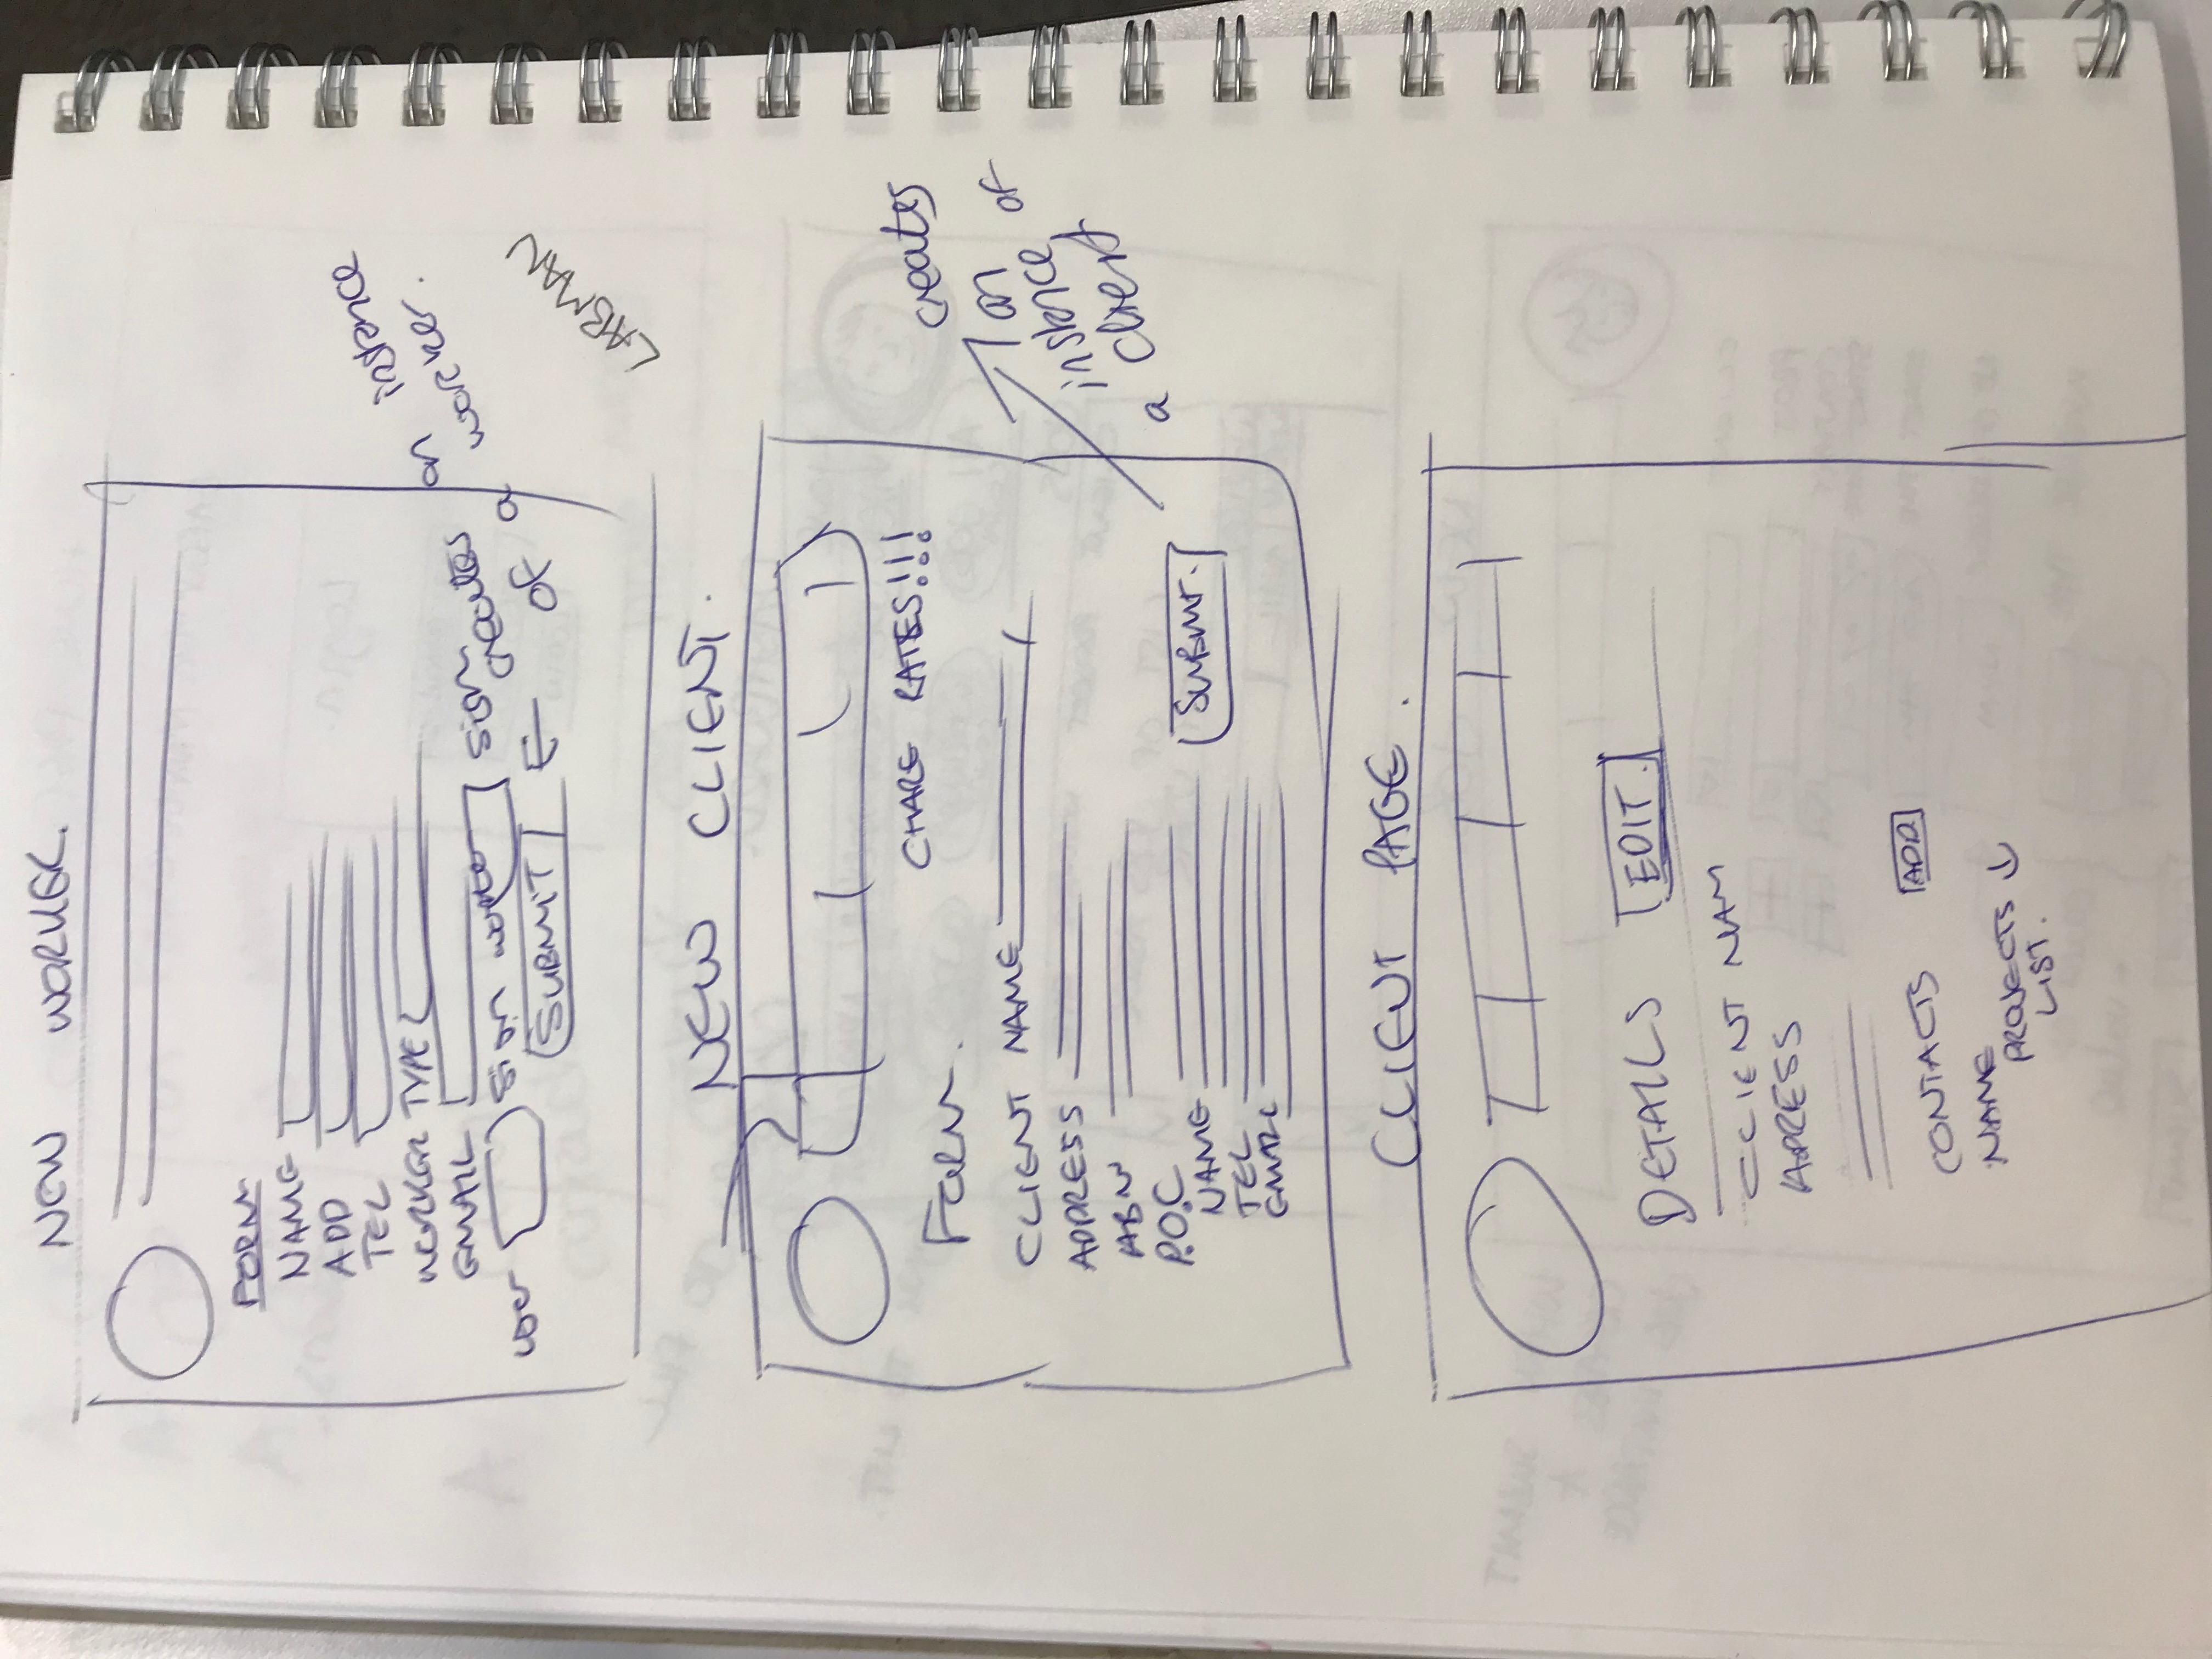 NEW WORKER.
FORM
NAME
ADD
TEL
WORKER TYPE
EMAIL
sign
SUBMIT
creates an instance
of a worker.
LABMAN
NEW CLIENT.
CHARE RATES!!!
FORM.
CLIENT NAME
ADDRESS
ABN
P.O.C
NAME
TEL
EMAIL
SUBMIT.
creates
an
instance of
a client
CLIENT PAGE.
DETAILS EDIT.
CLIENT NAM
ADRESS
CONTACTS ADD
NAME
PROJECTS ↓
LIST.